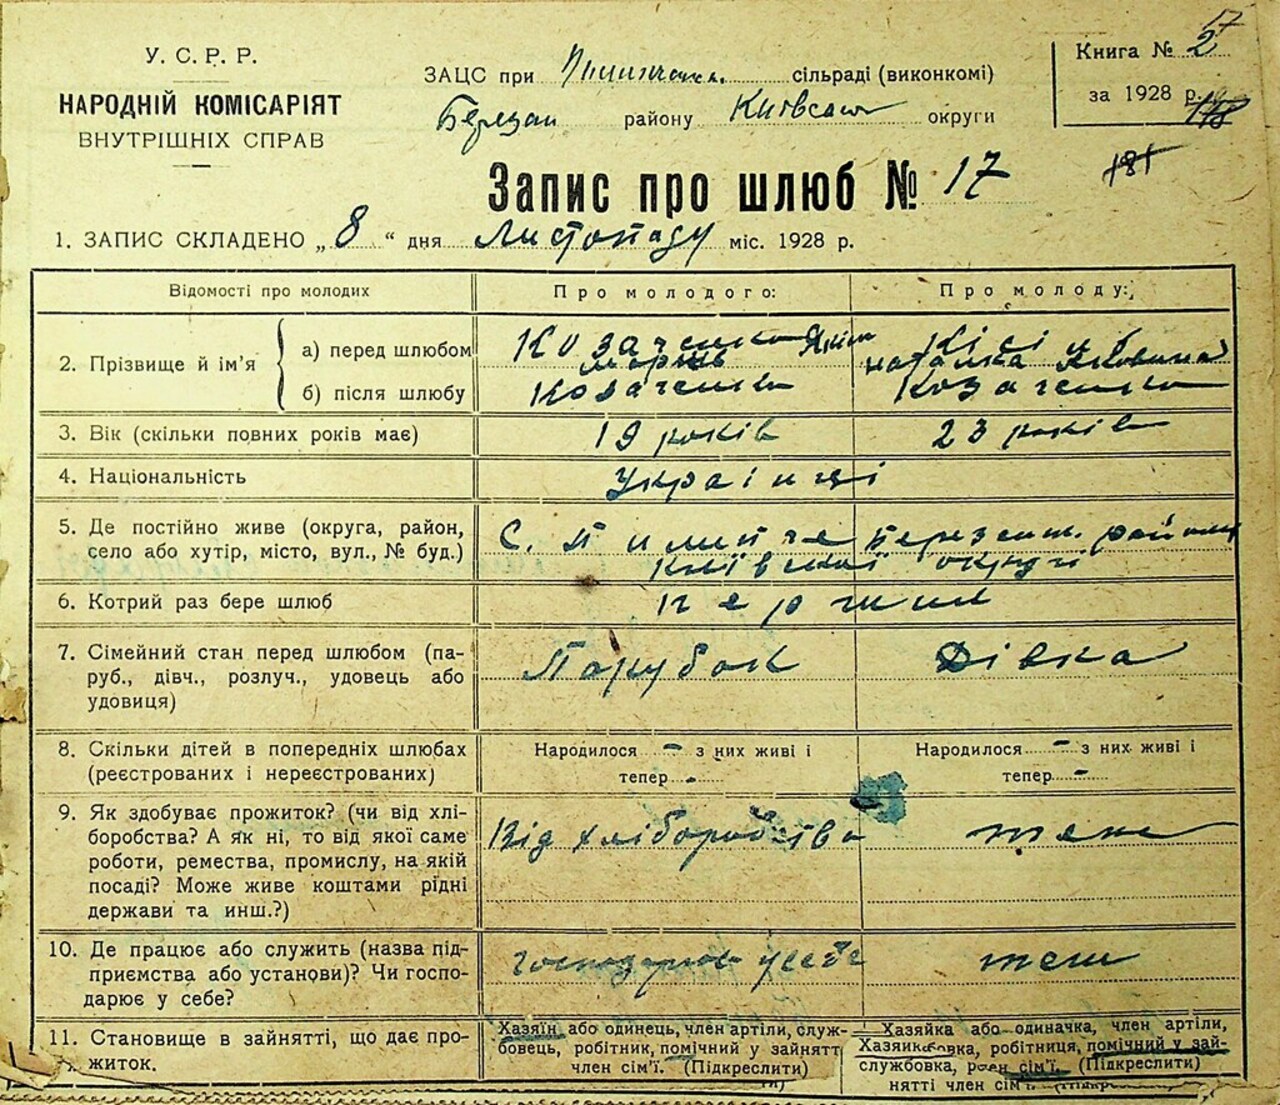 У. С. Р. Р.
НАРОДНІЙ КОМІСАРІЯТ
ВНУТРІШНІХ СПРАВ
ЗАЦС при сільраді (виконкомі)
Березан району Київської округи
Книга № 2
за 1928 р.
17
118
181
Запис про шлюб № 17
1. ЗАПИС СКЛАДЕНО „ 8 “ дня Листопаду міс. 1928 р.
Відомості про молодих
Про молодого:
Про молоду:
2. Прізвище й ім’я
а) перед шлюбом
Козаченко Яким
Марків
наталка Яковина
б) після шлюбу
Козаченко
Козаченко
3. Вік (скільки повних років має)
19 років
23 років
4. Національність
Українці
5. Де постійно живе (округа, район,
село або хутір, місто, вул., № буд.)
С. Пилипче Березан. району
київської округи
6. Котрий раз бере шлюб
перший
7. Сімейний стан перед шлюбом (па-
руб., дівч., розлуч., удовець або
удовиця)
Парубок
Дівка
8. Скільки дітей в попередніх шлюбах
(реєстрованих і нереєстрованих)
Народилося - з них живі і
тепер -
Народилося - з них живі і
тепер -
9. Як здобуває прожиток? (чи від хлі-
боробства? А як ні, то від якої саме
роботи, ремества, промислу, на якій
посаді? Може живе коштами рідні
держави та инш.?)
Від хліборобства
теж
10. Де працює або служить (назва під-
приємства або установи)? Чи госпо-
дарює у себе?
господарює у себе
теж
11. Становище в зайнятті, що дає про-
житок.
Хазяїн або одинець, член артіли, служ-
бовець, робітник, помічний у зайнятт
член сім’ї. (Підкреслити)
Хазяйка або одиначка, член артіли,
робітниця, помічний у зай-
службовка, сім’ї. (Підкреслити)
нятті член сім’ї